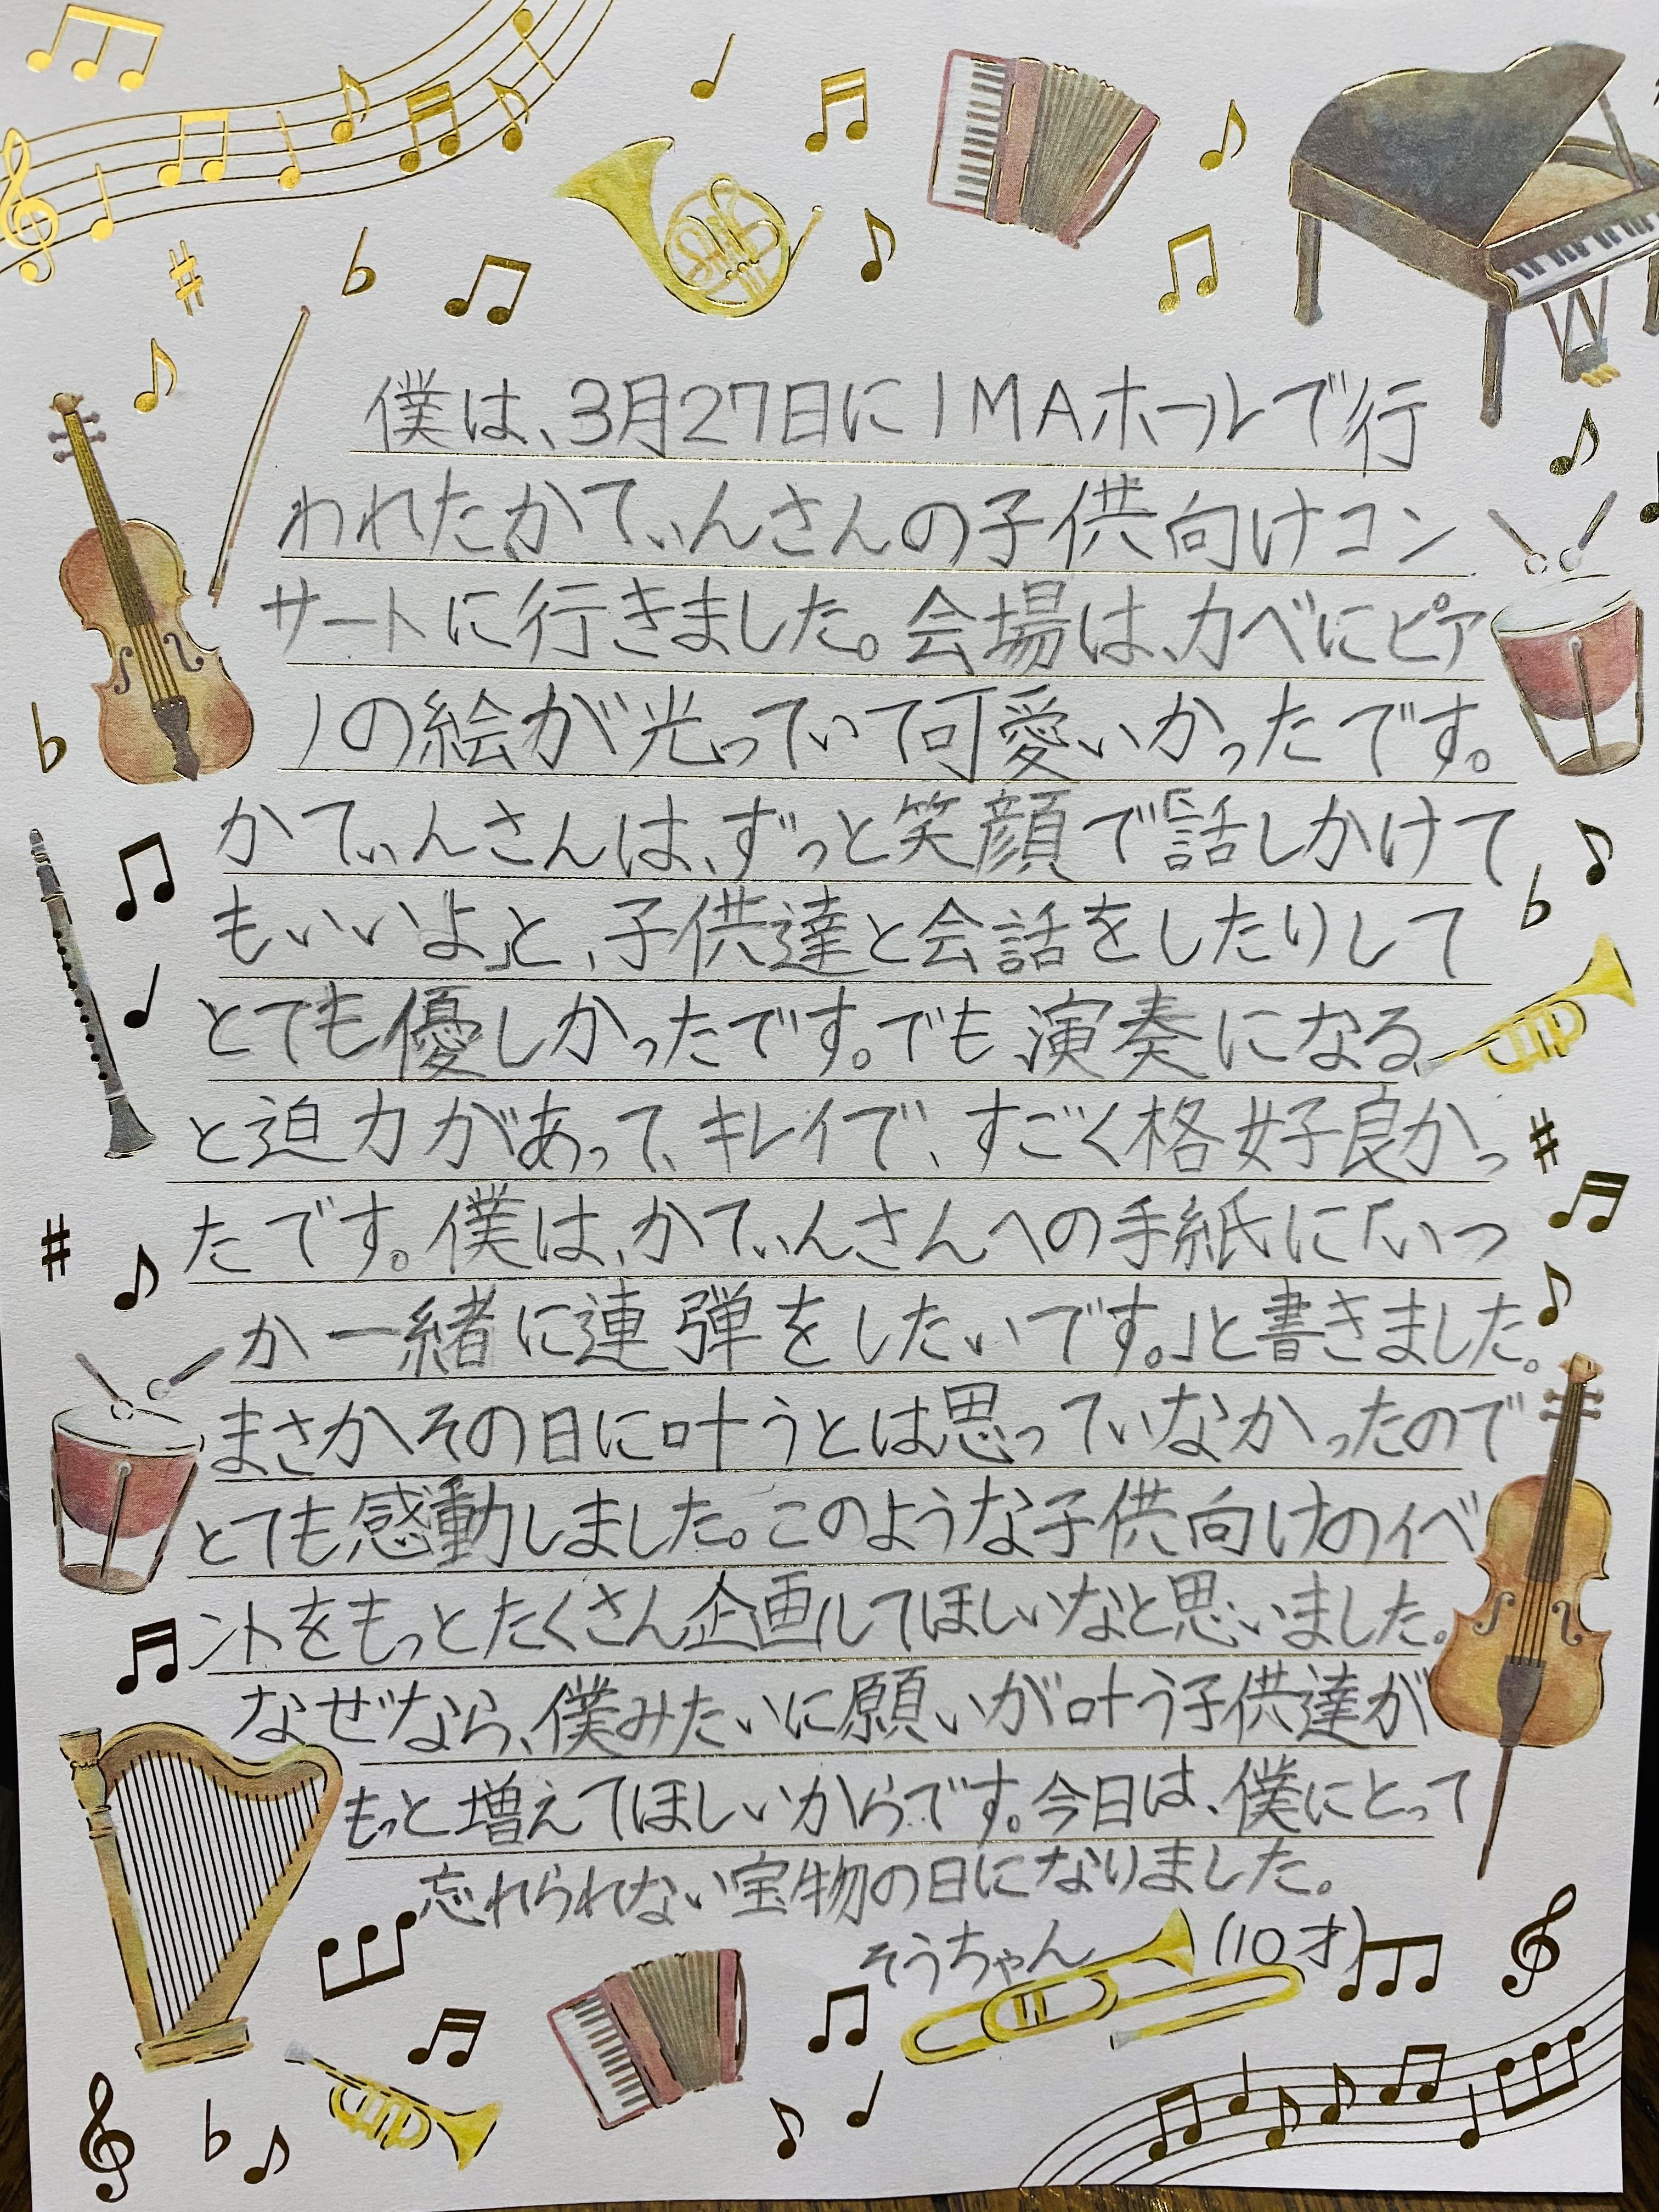 僕は、3月27日にIMAホールで行
われたかてぃんさんの子供向けコン
サートに行きました。会場は、カベにピア
ノの絵が光っていて可愛いかったです。
かてぃんさんは、ずっと笑顔で「話しかけて
もいいよ」と、子供達と会話をしたりして
とても優しかったです。でも演奏になる
と迫力があって、キレイで、すごく格好良かっ
たです。僕は、かてぃんさんへの手紙に「いつ
か一緒に連弾をしたいです。」と書きました。
まさかその日に叶うとは思っていなかったので
とても感動しました。このような子供向けのイベ
ントをもっとたくさん企画してほしいなと思いました。
なぜなら、僕みたいに願いが叶う子供達が
もっと増えてほしいからです。今日は、僕にとって
忘れられない宝物の日になりました。
そうちゃん(10才)